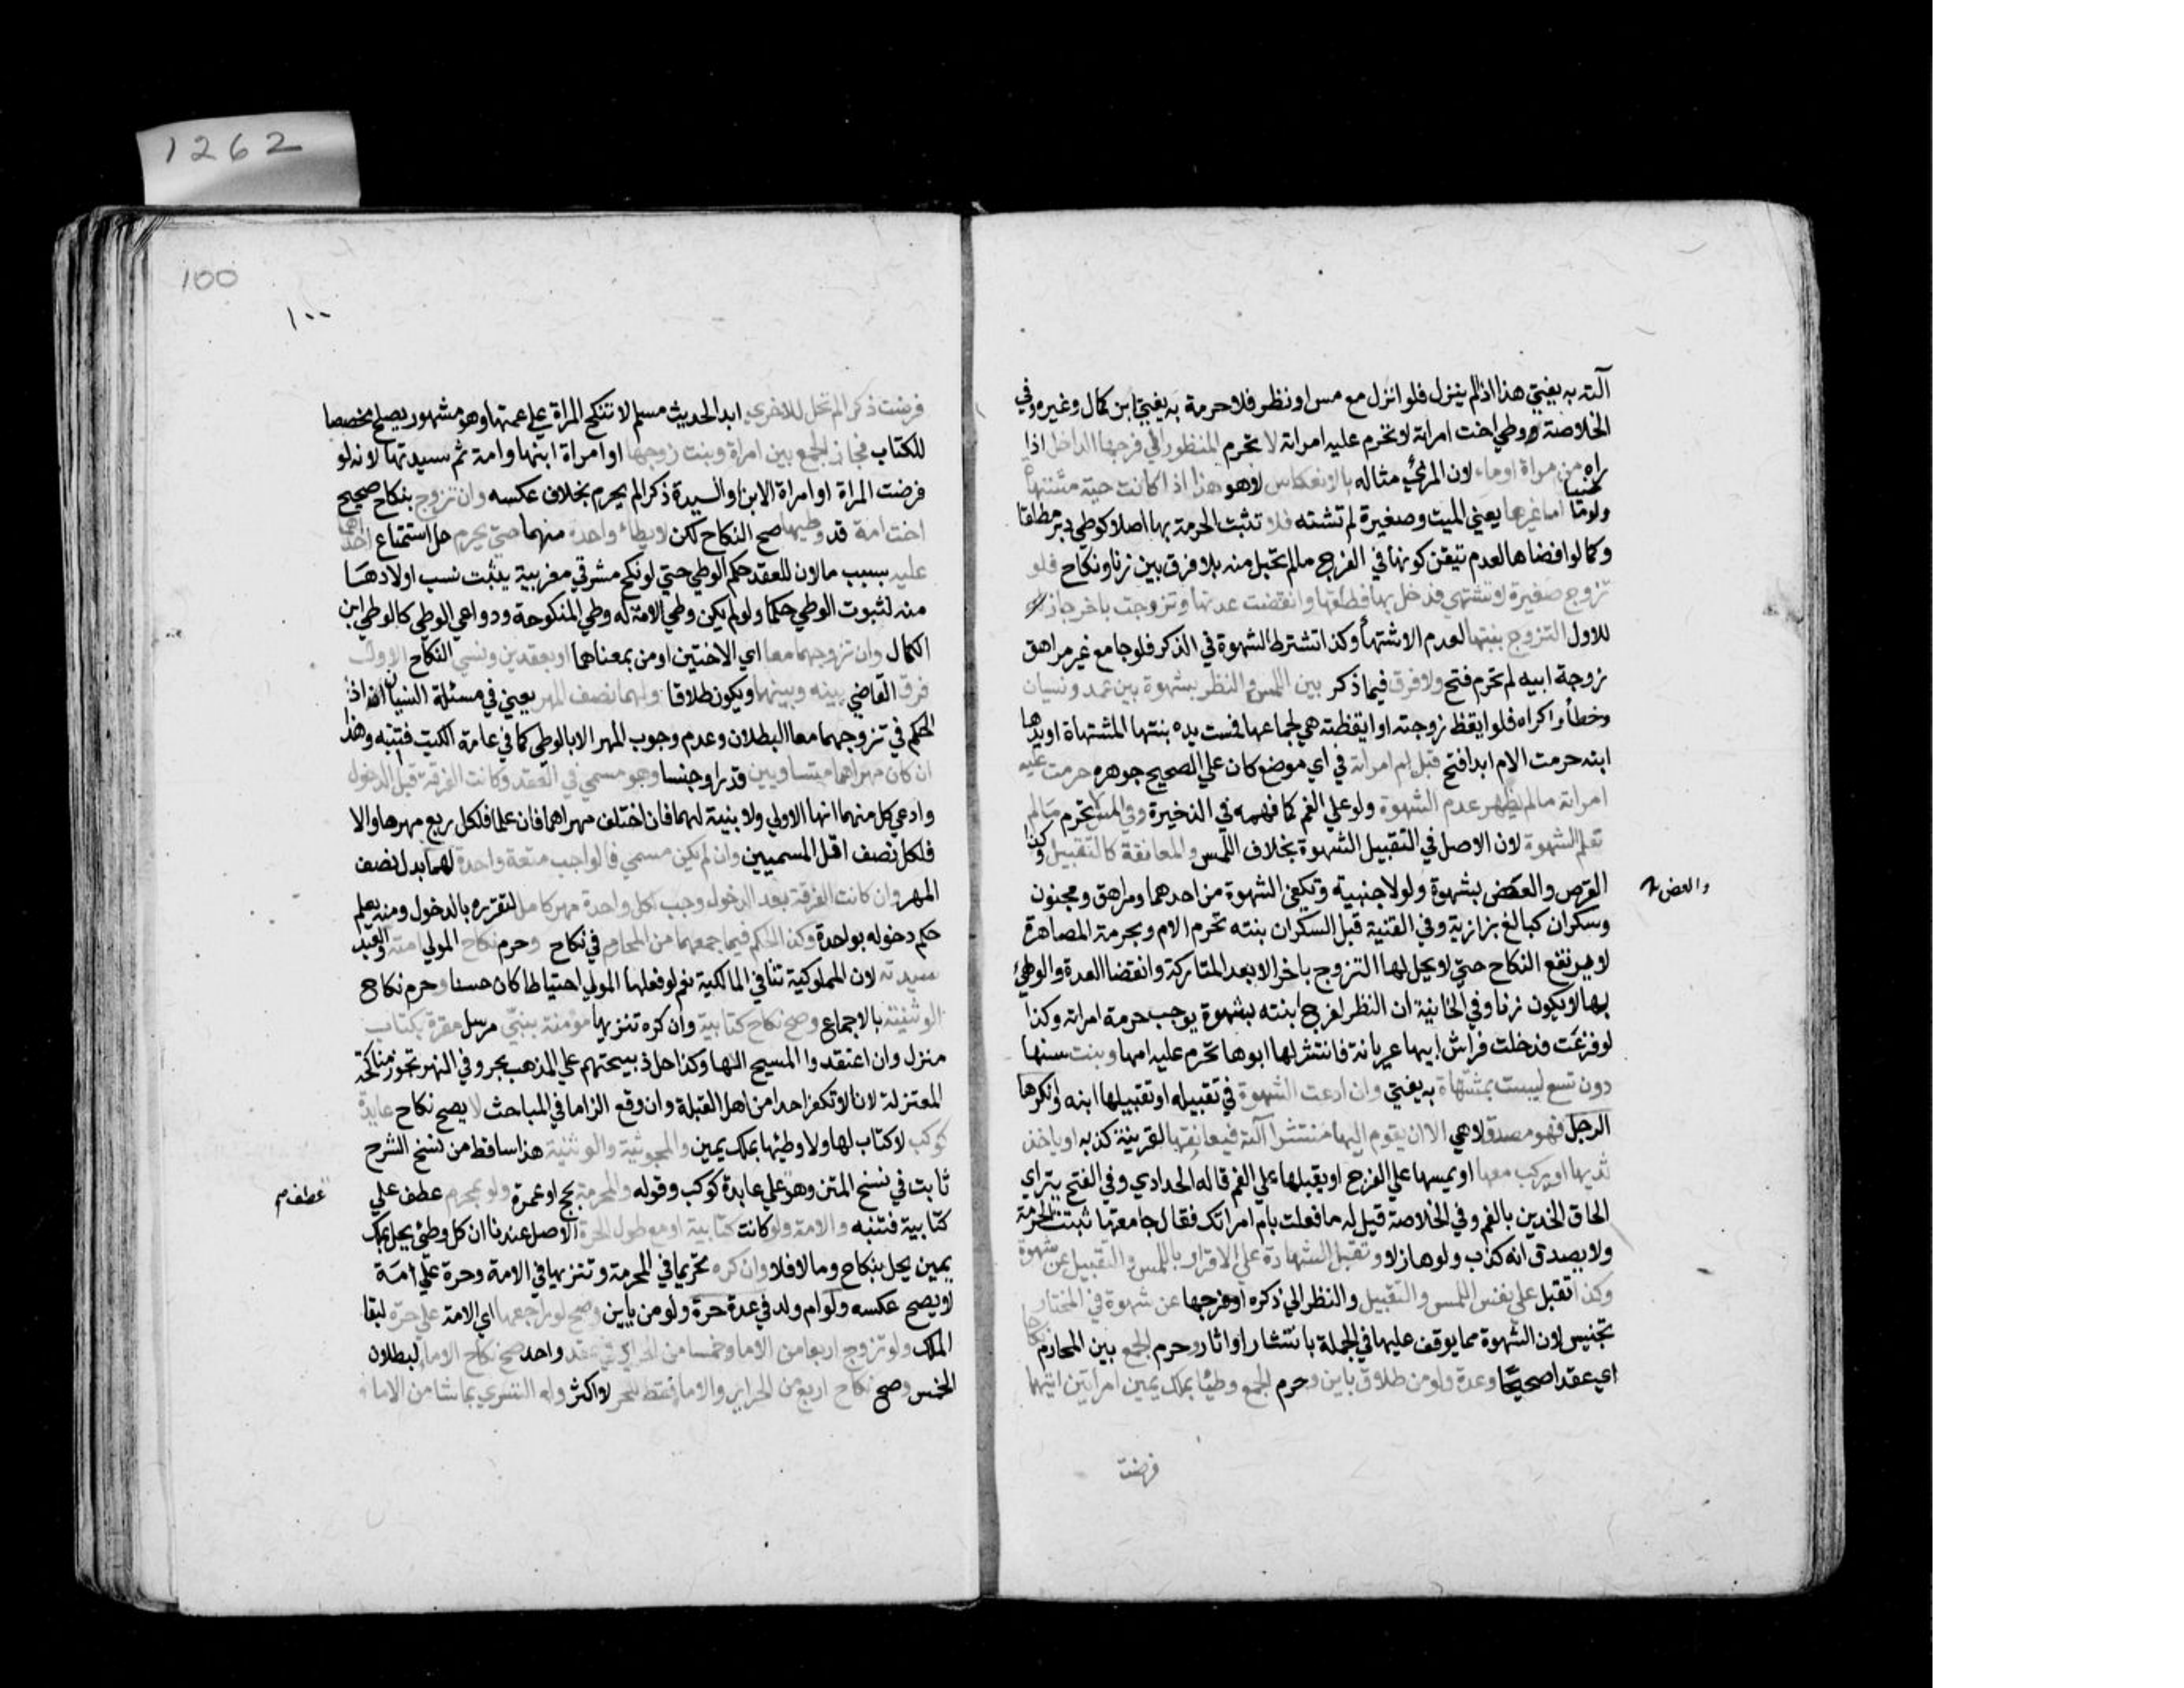 1262
آلته به يفتي هذا اذالم ينزل فلو انزل مع مس او نظر فلا حرمة به يفتي ابن كمال وغيره وفي
الخلاصة وطي اخت امراته لا تحرم عليه امراته لا تحرم المنظور الي فرجها الداخل اذا
راه من مراة اوماء لان المرئي مثاله بالانعكاس لا هو هذا اذا كانت حية مشتهاة
ولو ماضيا اما غيرها يعني الميت وصغيرة لم تشته فلا تثبت الحرمة بها اصلا كوطي دبر مطلقا
وكما لوافضاها لعدم تيقن كونه في الفرج مالم تحبل منه بلا فرق بين زنا ونكاح فلو
تزوج صغيرة لا تشتهي فدخل بها فطلقها وانقضت عدتها وتزوجت باخر جاز
للاول التزوج ببنتها لعدم الاشتها وكذا تشترط الشهوة في الذكر فلوجامع غير مراهق
زوجة ابيه لم تحرم فتح ولا فرق فيما ذكر بين اللمس والنظر بشهوة بين عمد ونسيان
وخطأ واكراه فلو ايقظ زوجته او ايقظته هي لجماعها فمست يده بنتها المشتهاة او يدها
ابنه حرمت الام ابدا فتح قبل ام امراته في اي موضع كان علي الصحيح جوهره حرمت عليه
امراته مالم يظهر عدم الشهوة ولو علي الفم كما فهمه في الذخيرة وفي المس لا تحرم مالم
تعلم الشهوة لان الاصل في التقبيل الشهوة بخلاف اللمس والمعانقة كالتقبيل وكذا
القرص والعض بشهوة ولو لاجنبية وتكفي الشهوة من احدهما ومراهق ومجنون
والعض
وسكران كبالغ بزازية وفي القنية قبل السكران بنته تحرم الام وبحرمة المصاهرة
لا يرتفع النكاح حتي لا يحل لها التزوج باخر الا بعد المتاركة وانقضا العدة والوطئ
بها لا يكون زنا وفي الخانية ان النظر لفرج ابنته بشهوة يوجب حرمة امراته وكذا
لو فزعت فدخلت فراش ابيها عريانة فانتشر لها ابوها تحرم عليه امها وبنت سنها
دون تسع ليست بمشتهاة به يفتي وان ادعت الشهوة في تقبيله او تقبيلها ابنه وانكرها
الرجل فهو مصدق لا هي الا ان يقوم اليها منتشرا آلته فيعانقها لقرينة كذبه او ياخذ
ثديها او يركب معها او يمسها علي الفرج او يقبلها علي الفم قاله الحدادي وفي الفتح يتراي
الحاق الخدين بالفم وفي الخلاصة قيل له ما فعلت بام امراتك فقال جامعتها ثبتت الحرمة
ولا يصدق انه كذب ولو هازلا وتقبل الشهادة علي الاقرار باللمس والتقبيل عن شهوة
وكذا تقبل علي نفس اللمس والتقبيل والنظر الي ذكره او فرجها عن شهوة في المختار
تجنيس لان الشهوة مما يوقف عليها في الجملة بانتشار او اثار وحرم الجمع بين المحارم نكاحا
اي عقدا صحيحا وعدة ولو من طلاق باين وحرم الجمع وطئا بملك يمين امراتين ايتهما
فرضت
100
١٠٠
فرضت ذكرا لم تحل للاخري ابدا لحديث مسلم لا تنكح المراة علي عمتها وهو مشهور يصلح مخصصا
للكتاب فجاز الجمع بين امراة وبنت زوجها او امراة ابنها وامة ثم سيدتها لانه لو
فرضت المراة او امراة الابن او السيدة ذكرا لم يحرم بخلاف عكسه وان تزوج بنكاح صحيح
اخت امة قد وطيها صح النكاح لكن لا يطاء واحدة منهما حتي يحرم حل استمتاع احداهما
عليه بسبب ما لان للعقد حكم الوطي حتي لو نكح مشرقي مغربية يثبت نسب اولادها
منه لثبوت الوطي حكما ولو لم يكن وطي الامة له وطي المنكوحة ودواعي الوطي كالوطي ابن
الكمال وان تزوجهما معا اي الاختين او من بمعناهما او بعقدين ونسي النكاح الاول
فرق القاضي بينه وبينهما ويكون طلاقا ولهما نصف المهر يعني في مسئلة النسيان اذ
الحكم في تزوجهما معا البطلان وعدم وجوب المهر الا بالوطي كما في عامة الكتب فتنبه وهذا
ان كان مهراهما متساويين قدرا وجنسا وهو مسمي في العقد وكانت الفرقة قبل الدخول
وادعي كل منهما انها الاولي ولا بينة لهما فان اختلف مهراهما فان علما فلكل ربع مهرها والا
فلكل نصف اقل المسميين وان لم يكن مسمي فالواجب متعة واحدة لهما بدل نصف
المهر وان كانت الفرقة بعد الدخول وجب لكل واحدة مهر كامل لتقرره بالدخول ومنه يعلم
حكم دخوله بواحدة وكذا الحكم فيما جمعهما من المحارم في نكاح وحرم نكاح المولي امته والعبد
سيدته لان المملوكية تنافي المالكية نعم لو فعلها المولي احتياطا كان حسنا وحرم نكاح
الوثنية بالاجماع وصح نكاح كتابية وان كره تنزيها مؤمنة بنبي مرسل مقرة بكتاب
منزل وان اعتقدوا المسيح الها وكذا حل ذبيحتهم علي المذهب بحر وفي النهر تجوز مناكحة
المعتزلة لانا لا نكفر احدا من اهل القبلة وان وقع الزاما في المباحث لا يصح نكاح عابدة
كوكب لا كتاب لها ولا وطئها بملك يمين والمجوسية والوثنية هذا ساقط من نسخ الشرح
ثابت في نسخ المتن وهو علي عابدة كوكب وقوله والمحرمة بحج او عمرة ولو بمحرم عطف علي
عطف
كتابية فتنبه والامة ولو كانت كتابية او مع طول الحرة الاصل عندنا ان كل وطئ يحل بملك
يمين يحل بنكاح وما لا فلا وان كره تحريما في المحرمة وتنزيها في الامة وحرة علي امة
لا يصح عكسه ولو ام ولد في عدة حرة ولو من باين وصح لو راجعها اي الامة علي حرة لبقا
الملك ولو تزوج اربعا من الاما وخمسا من الحراير في عقد واحد صح نكاح الاما لبطلان
الخمس وصح نكاح اربع من الحراير والاما فقط للحر لا اكثر وله التسري بما شا من الاما